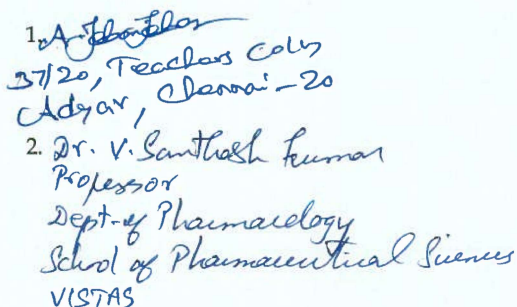 1. A.
37/20, Teachers Coly
Adyar, Chennai-20
2. Dr. V. Santhosh Kumar
Professor
Dept-of Pharmacology
School of Pharmaceutical Sciences
VISTAS